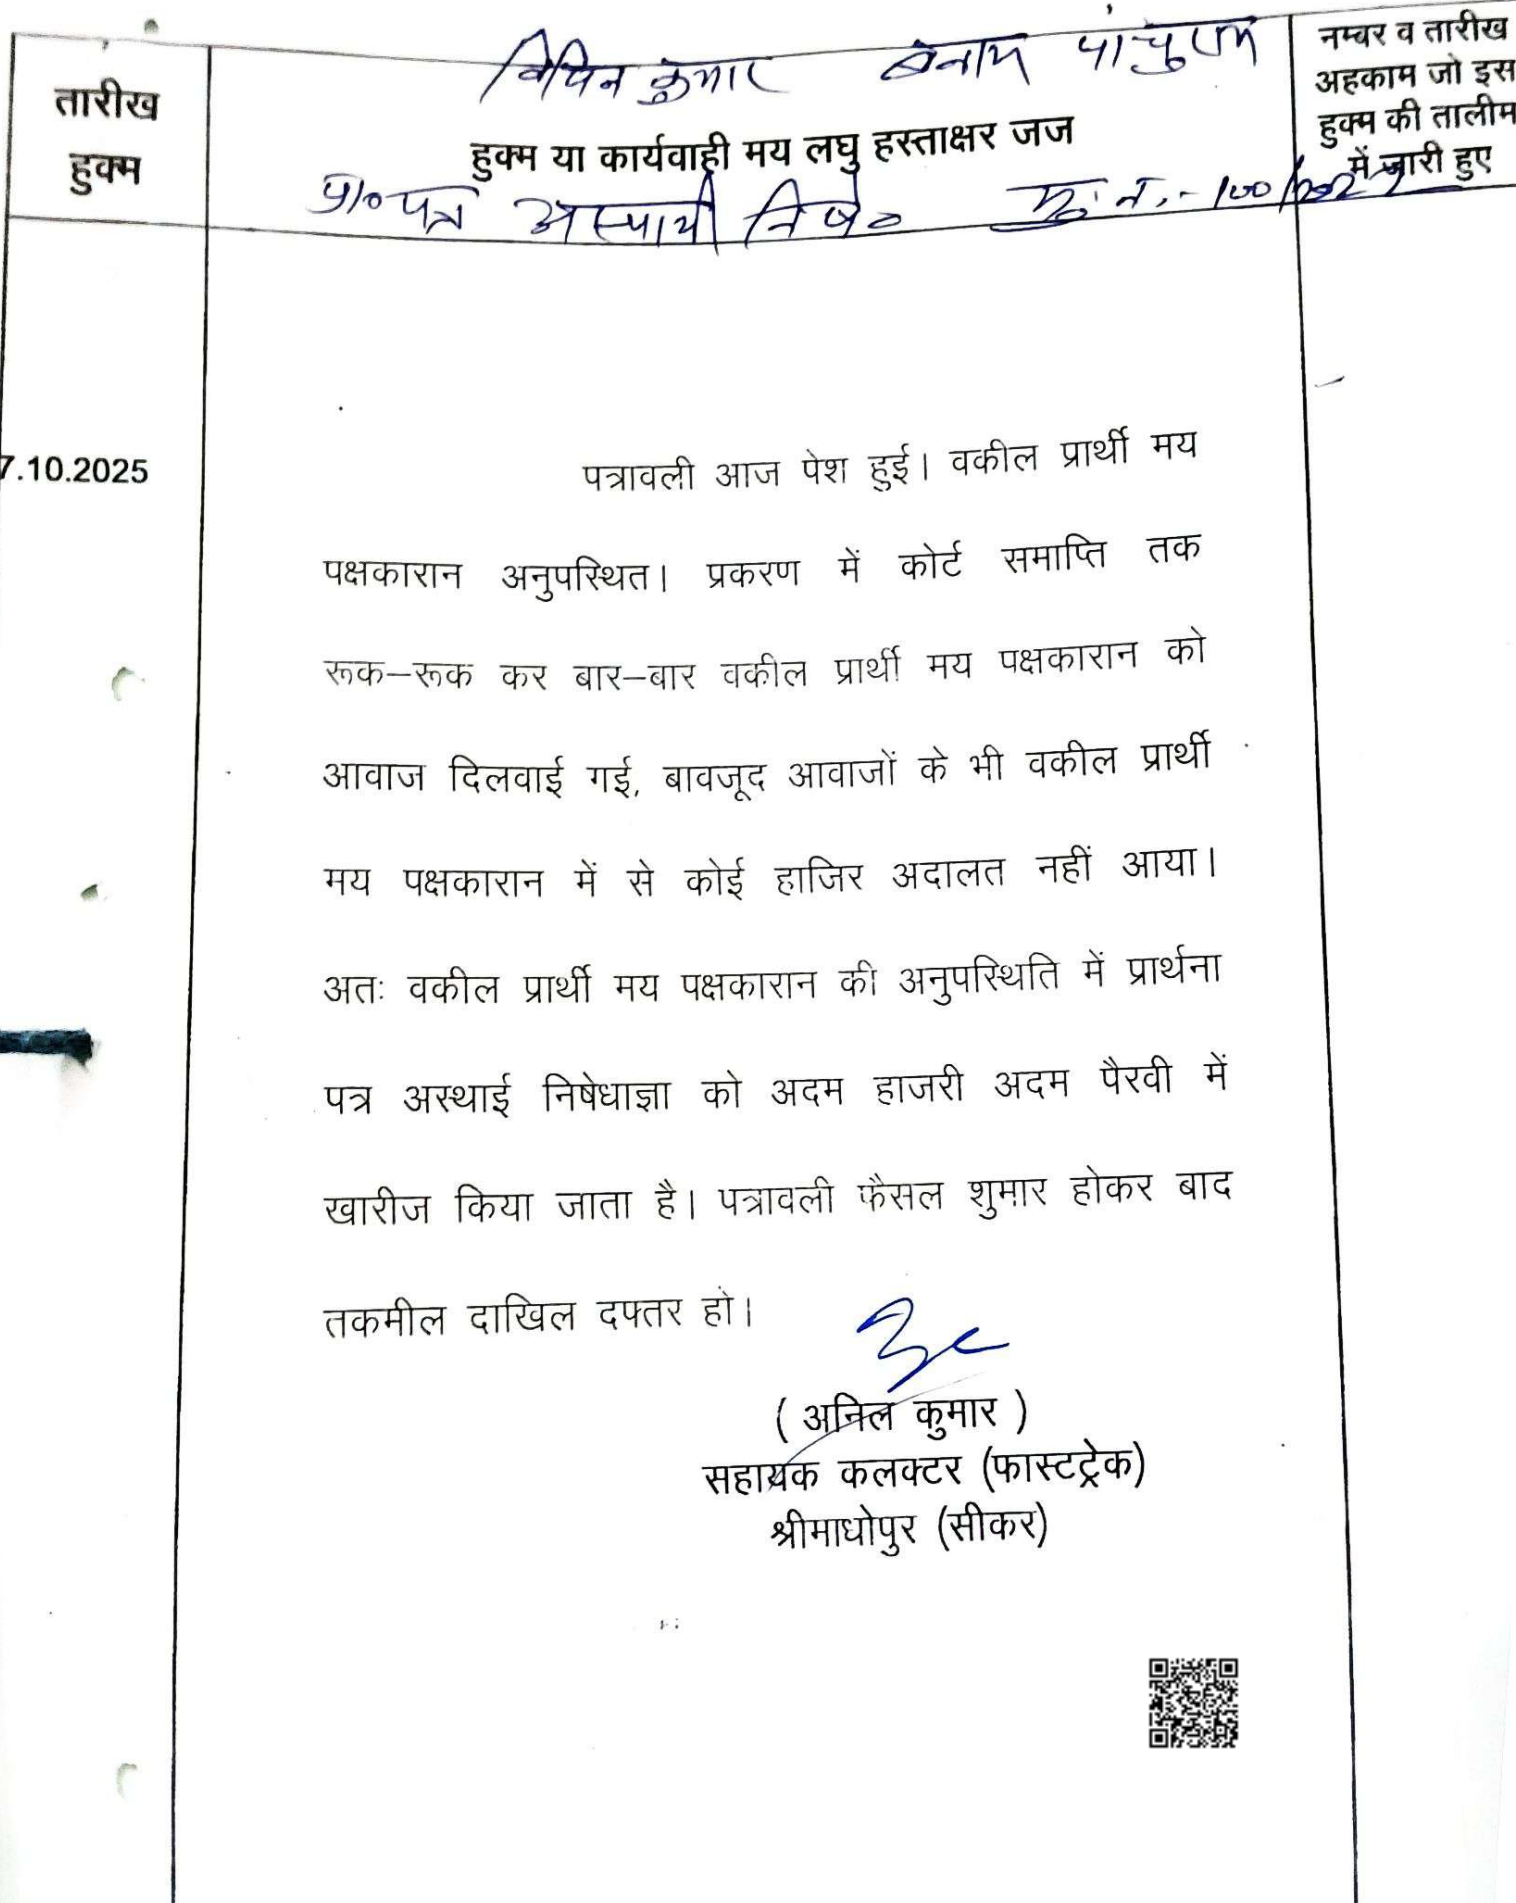 विपिन कुमार बनाम पांचुराम
तारीख
हुक्म
हुक्म या कार्यवाही मय लघु हस्ताक्षर जज
नम्बर व तारीख
अहकाम जो इस
हुक्म की तालीम
में जारी हुए
प्रा०पत्र अस्थायी निषे० मु. न. - 100/
7.10.2025
पत्रावली आज पेश हुई। वकील प्रार्थी मय
पक्षकारान अनुपस्थित। प्रकरण में कोर्ट समाप्ति तक
रूक–रूक कर बार–बार वकील प्रार्थी मय पक्षकारान को
आवाज दिलवाई गई, बावजूद आवाजों के भी वकील प्रार्थी
मय पक्षकारान में से कोई हाजिर अदालत नहीं आया।
अतः वकील प्रार्थी मय पक्षकारान की अनुपस्थिति में प्रार्थना
पत्र अस्थाई निषेधाज्ञा को अदम हाजरी अदम पैरवी में
खारीज किया जाता है। पत्रावली फैसल शुमार होकर बाद
तकमील दाखिल दफ्तर हो।
( अनिल कुमार )
सहायक कलक्टर (फास्टट्रेक)
श्रीमाधोपुर (सीकर)